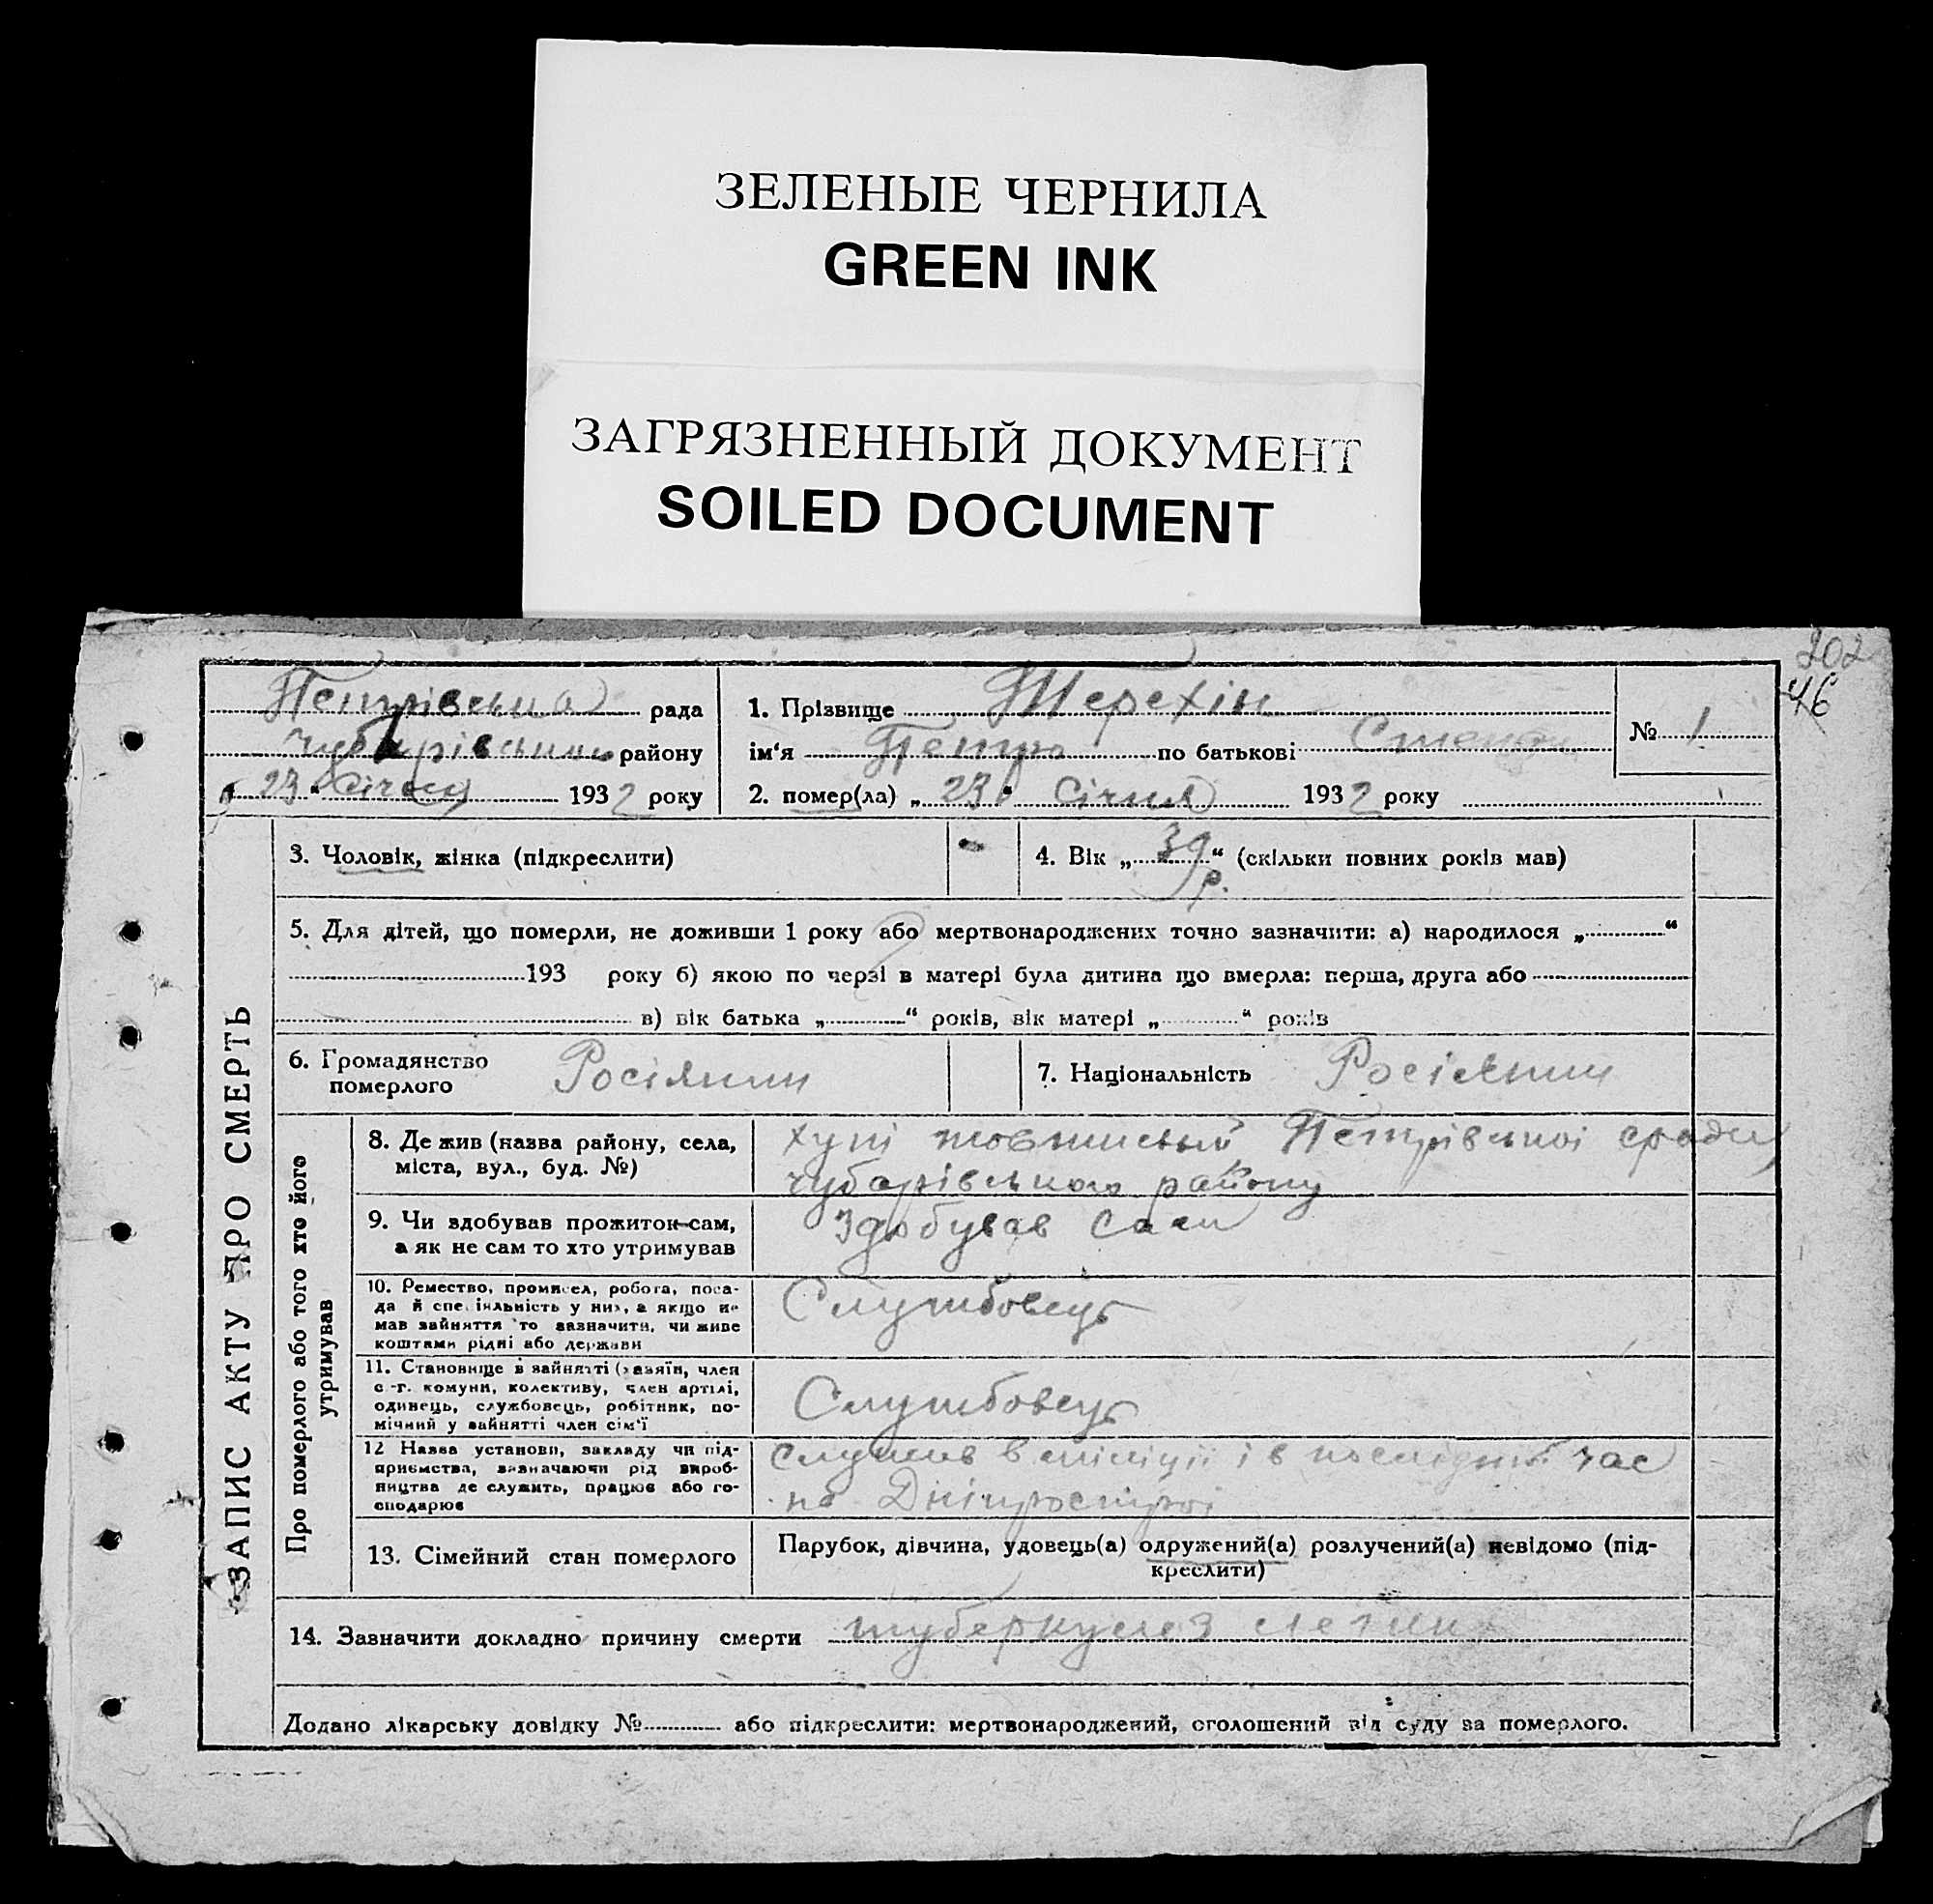 ЗЕЛЕНЫЕ ЧЕРНИЛА
GREEN INK
ЗАГРЯЗНЕННЫЙ ДОКУМЕНТ
SOILED DOCUMENT
202
46
Петрівська рада
Чубарівський району
„23“ Січня 1932 року
1. Прізвище Терехін
ім‘я Петро по батькові Степан
2. помер(ла) „23“ Січня 1932 року
№ 1
ЗАПИС АКТУ ПРО СМЕРТЬ
3. Чоловік, жінка (підкреслити)
4. Вік „39“ (скільки повних років мав)
р.
5. Для дітей, що померли, не доживши 1 року або мертвонароджених точно зазначити: а) народилося „ “
193 року б) якою по черзі в матері була дитина що вмерла: перша, друга або
в) вік батька „ “ років, вік матері „ “ років
6. Громадянство
померлого
Росіянин
7. Національність Росіянин
Про померлого або того хто його
утримував
8. Де жив (назва району, села,
міста, вул., буд. №)
Петрівської
Чубарівського району
9. Чи здобував прожиток—сам,
а як не сам то хто утримував
Здобував Сам
10. Ремество, промисел, робота, поса-
да й спеціяльність у них, а якщо не
мав зайняття то зазначити, чи живе
коштами рідні або держави
Службовець
11. Становище в зайнятті (хазяїн, член
с.-г. комуни, колективу, член артілі,
одинець, службовець, робітник, по-
мічний у зайнятті член сім‘ї
Службовець
12 Назва установи, закладу чи під-
приємства, зазначаючи рід вироб-
ництва де служить, працює або го-
сподарює
Служив в міліції і в послідний час
на Дніпрострої
13. Сімейний стан померлого
Парубок, дівчина, удовець(а) одружений(а) розлучений(а) невідомо (під-
креслити)
14. Зазначити докладно причину смерти туберкульоз легких
Додано лікарську довідку № або підкреслити: мертвонароджений, оголошений від суду за померлого.